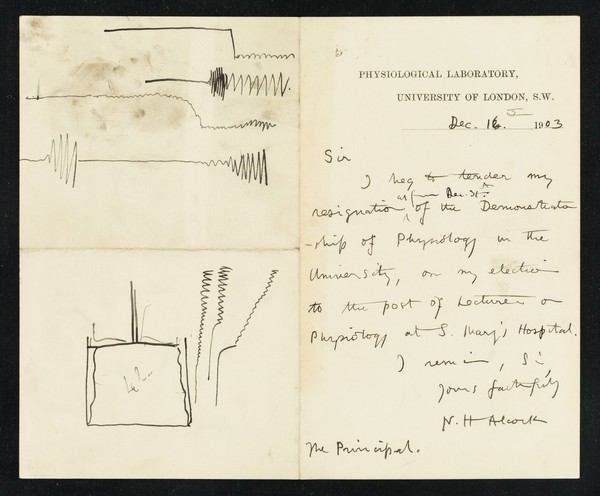 PHYSIOLOGICAL LABORATORY,
UNIVERSITY OF LONDON, S.W.
Dec. 16. 1903
Sir
I beg to tender my
as from Dec. 31st
resignation of the Demonstrator
-ship of Physiology in the
University, on my election
to the post of Lecturer on
Physiology at S. Mary's Hospital.
I remain, Sir,
Yours faithfully
N. H Alcock
The Principal.